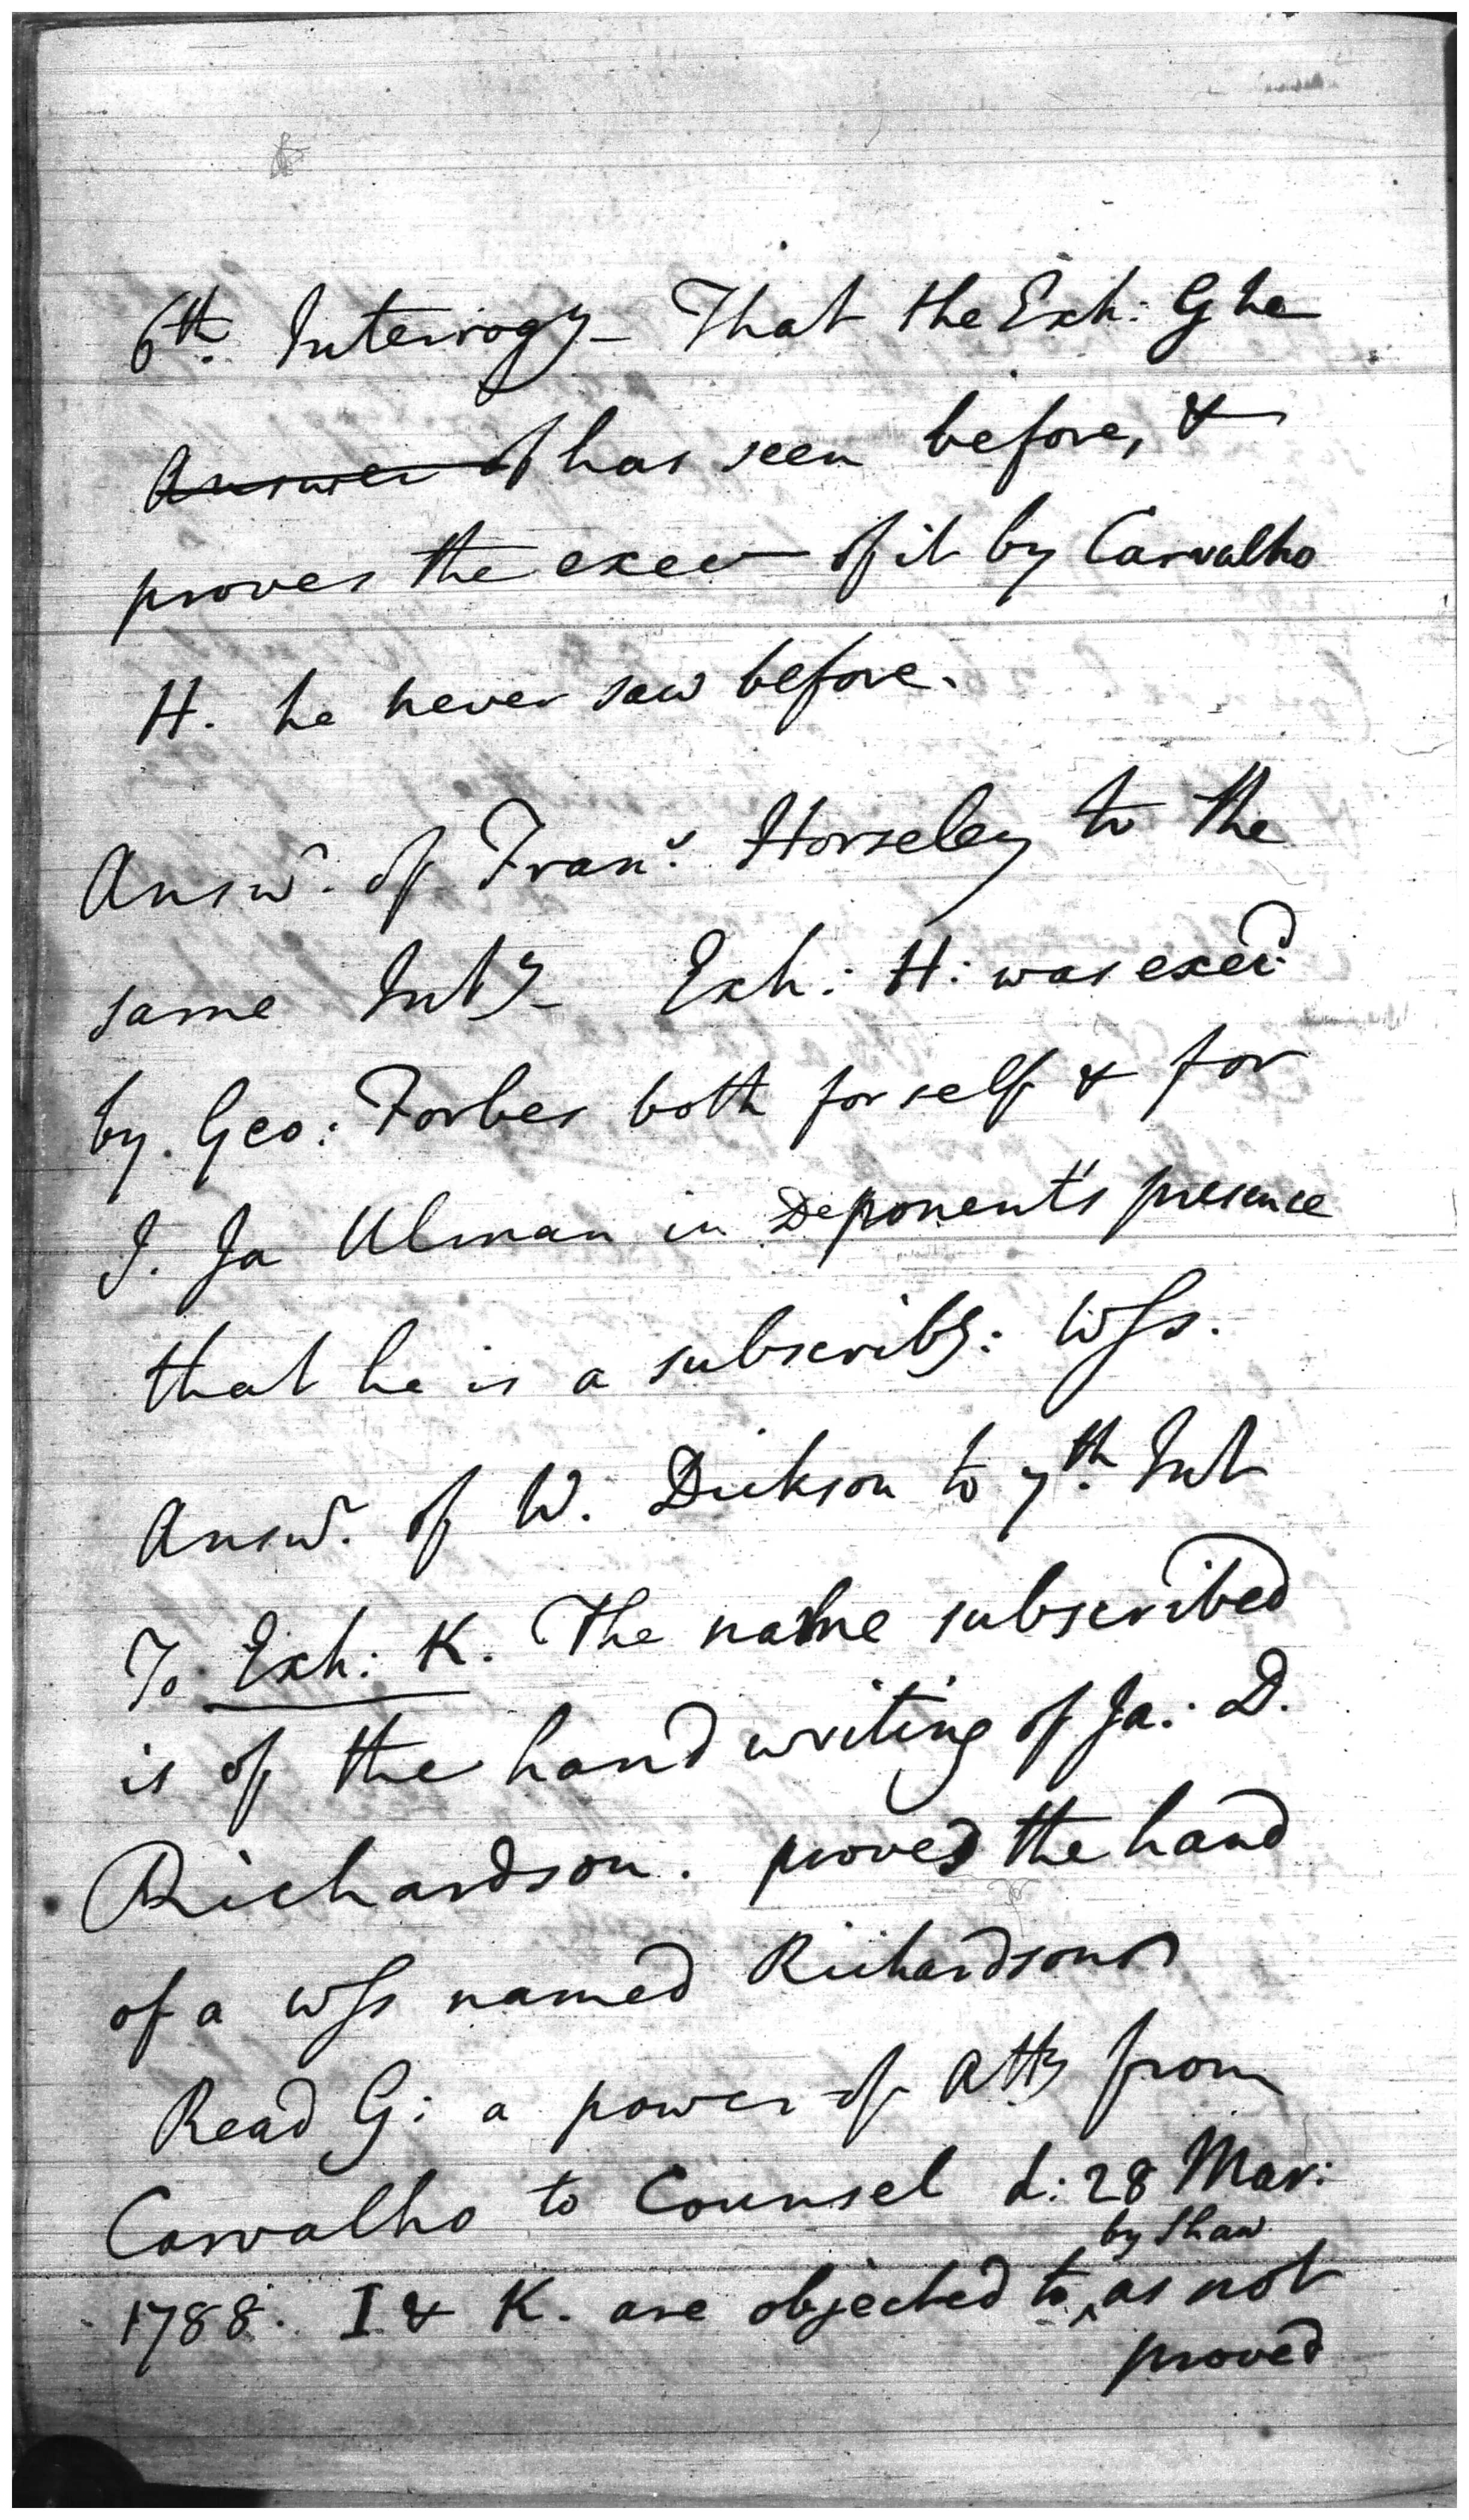 6th. Interrogy_ That the Exh: G he
Answer of has seen before, &
proves the execn of it by Carvalho
H. he never saw before.
Answr. of Frans. Horseley to the
same Inty_ Exh: H: was execd:
by Geo: Forbes both for self & for
J. Ja Ulman in Deponent's presence
that he is a subscribg: Wss.
Answr. of W. Dickson to 7th. Int
To Exh: K. The name subscribed
is of the hand writing of Ja: D.
Richardson. proved the hand
of a wss named Richardson
Read G: a power of Atty from
Carvalho to Counsel d: 28 Mar:
by Shaw
1788. I & K. are objected to ^ as not
proved